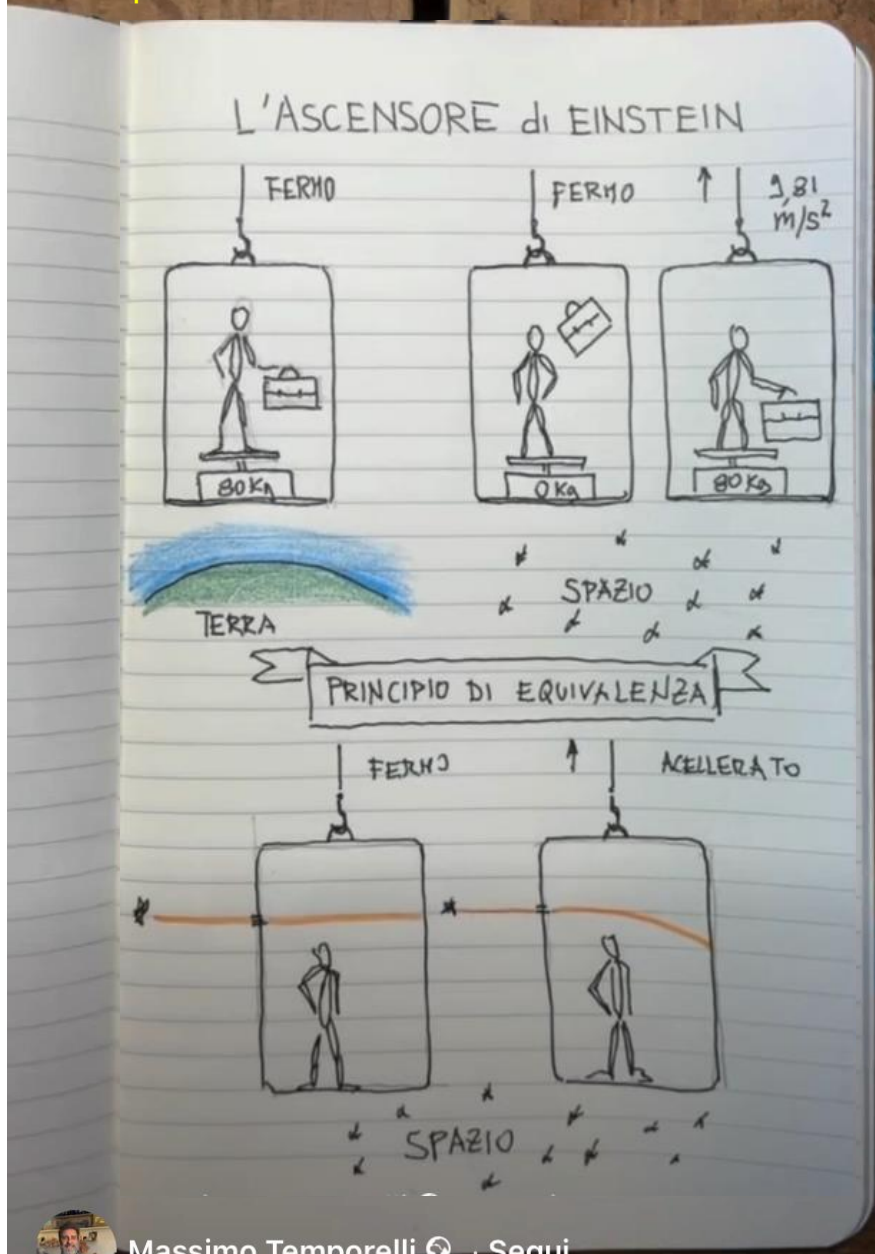 L'ASCENSORE di EINSTEIN
FERMO
FERMO
9,81
m/s²
80 Kg
0 Kg
80 Kg
TERRA
SPAZIO
PRINCIPIO DI EQUIVALENZA
FERMO
ACELLERATO
SPAZIO
Massimo Temporelli
Segui